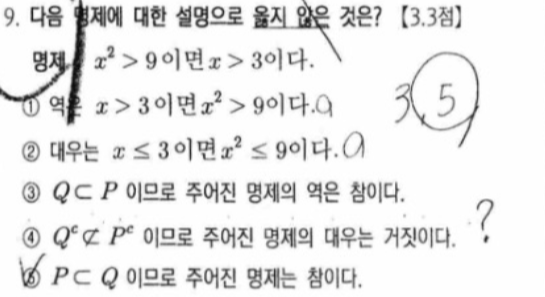 9. 다음 명제에 대한 설명으로 옳지 않은 것은? 【3.3점】
명제 x² > 9이면 x > 3이다.
① 역은 x > 3이면 x² > 9이다.
3, 5
② 대우는 x ≤ 3이면 x² ≤ 9이다.
③ Q ⊂ P 이므로 주어진 명제의 역은 참이다.
④ Qᶜ ⊄ Pᶜ 이므로 주어진 명제의 대우는 거짓이다. ?
⑤ P ⊂ Q 이므로 주어진 명제는 참이다.